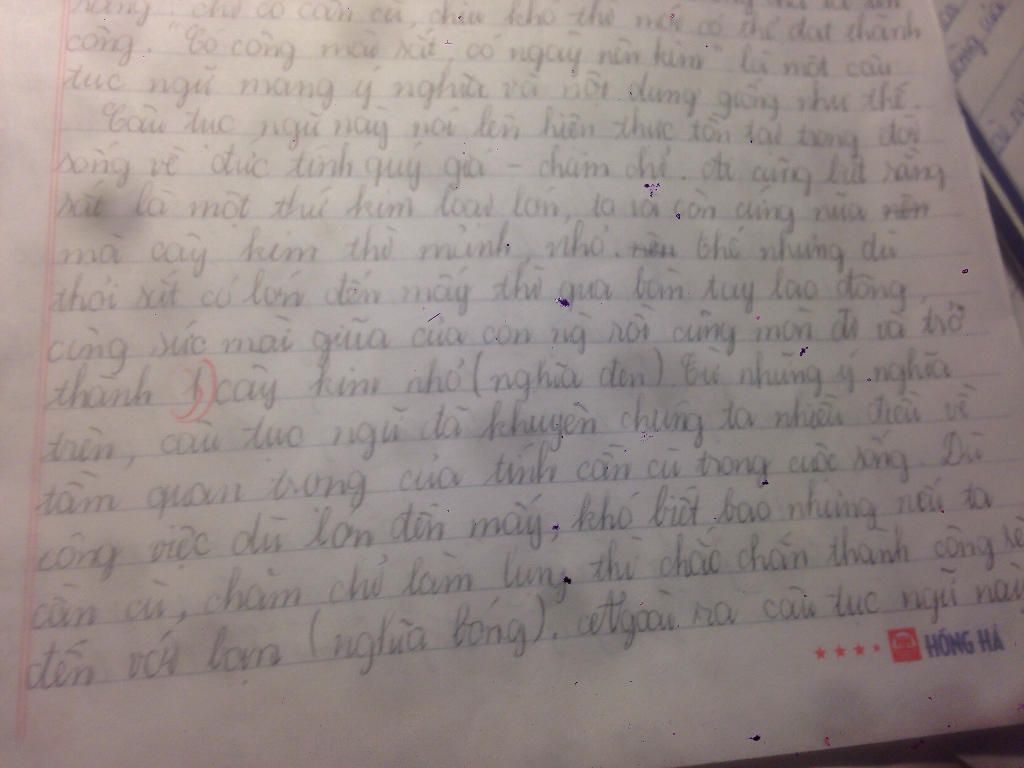 chỉ có cần cù, chịu khó thì mới có thể đạt thành
công. "Có công mài sắt, có ngày nên kim" là một câu
tục ngữ mang ý nghĩa và nội dung giống như thế.
Câu tục ngữ này nói lên hiện thực tồn tại trong đời
sống về đức tính quý giá - chăm chỉ. Ai cũng biết rằng
sắt là một thứ kim loại lớn, to và còn cứng nữa nên
mà cây kim thì mảnh, nhỏ. nên thế nhưng dù
thỏi sắt có lớn đến mấy thì qua bàn tay lao động
cùng sức mài giũa của con ng rồi cũng mòn đi và trở
thành 1 cây kim nhỏ (nghĩa đen). Từ những ý nghĩa
trên, câu tục ngữ đã khuyên chúng ta nhiều điều về
tầm quan trọng của tính cần cù trong cuộc sống. Dù
công việc dù lớn đến mấy, khó biết bao nhưng nếu ta
cần cù, chăm chỉ làm lụng thì chắc chắn thành công sẽ
đến với bạn (nghĩa bóng). Ngoài ra câu tục ngữ này
HỒNG HÀ